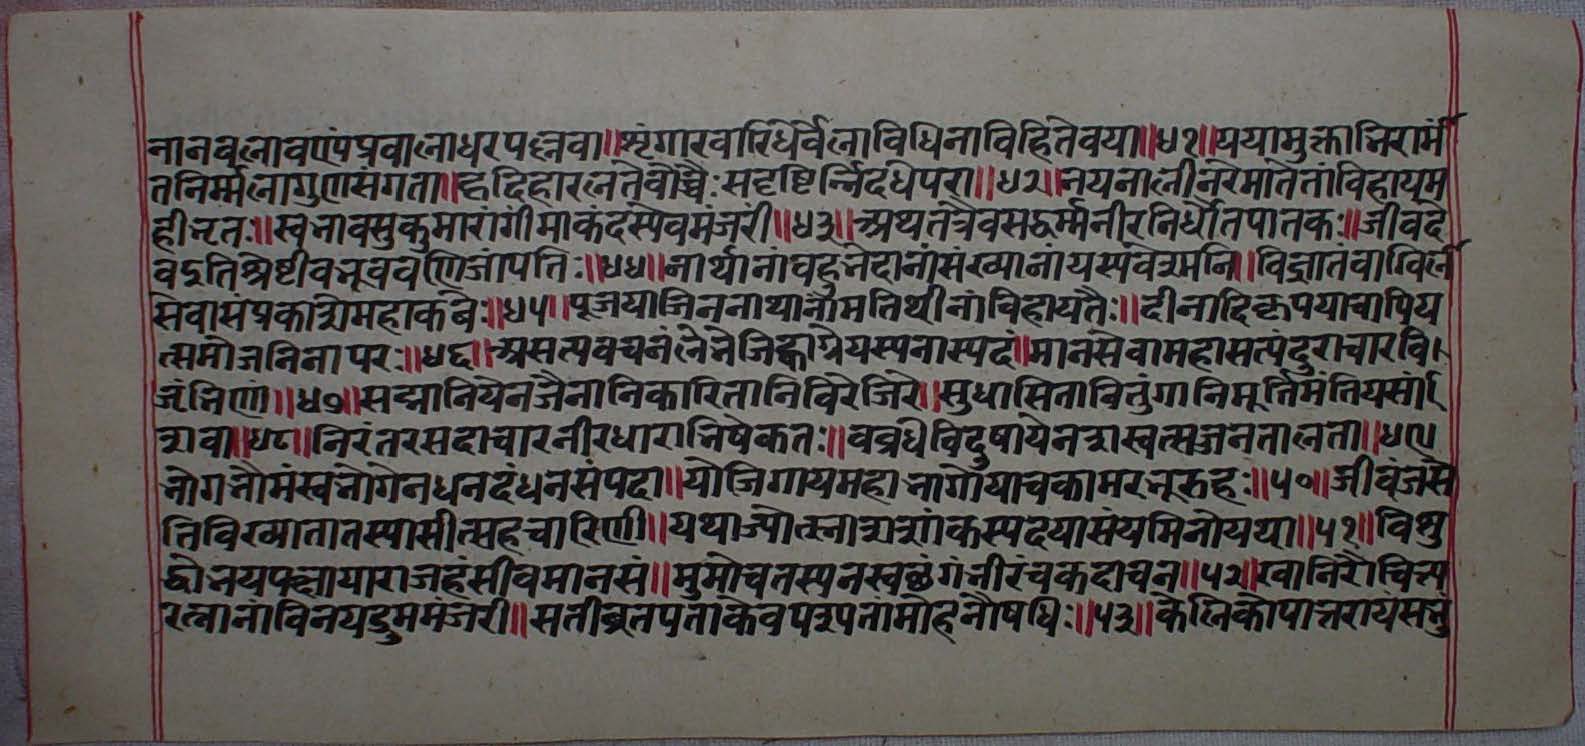 नानवलावण्यप्रवालाधरपल्लवा॥शृंगारवारिधेर्वेलाविधिनाविहितेवया॥४१॥ययामुक्ताभिरामं
तनिर्म्मलागुणसंगता॥हृदिहारलतेवोच्चैःसदृष्टिर्न्निदधेपरा॥४२॥नयनालीनरेमातेतांविहायम
हीभृतः॥स्वभावसुकुमारांगीमाकंदस्येवमंजरीं॥४३॥अथतत्रैवसद्धर्म्मनीरनिर्धौतपातकः॥जीवदे
वइतिश्रेष्टीबभूववणिजांपतिः॥४४॥नार्थानांबहुभेदानांसंख्यानांयस्यवेश्मनि॥विज्ञातंवाग्विर्ल
सेवासंप्रकाशेमहाकवेः॥४५॥पूजयाजिननाथानामतिथीनांविहायतैः॥दीनादिकृपयाचापिय
त्समोजनिनापरः॥४६॥असत्यवचनंलेभेजिह्वाग्रेयस्यनास्पदं॥मानसेवामहासत्यंदुराचारवि
जृंभिणं॥४७॥सद्मानियेनजैनानिकारितानिविरेजिरे॥सुधासितानितुंगानिमूर्त्तिमंतियसां
शवा॥४८॥निरंतरसदाचारनीरधाराभिषेकतः॥ववृधेविदुषायेनशस्वत्सज्जनतालता॥४९
भोगभौमंस्वभोगेनधनदंधनसंपदा॥योजिगायमहाभागोयाचकामरभूरुहः॥५०॥जीवंजसे
तिविख्यातातस्यासीत्सहचारिणी॥यथाज्योत्स्नाशशांकस्यदयासंयमिनोयथा॥५१॥विशु
द्धोभयपक्षायाराजहंसीवमानसं॥मुमोचतस्यनस्वच्छंगंभीरंचकदाचन॥५२॥खानिरौचित्य
रत्नानांविनयद्रुममंजरी॥सतीव्रतपताकेवपश्यतांमोहनौषधिः॥५३॥केलिकोपान्नरायंसभुं